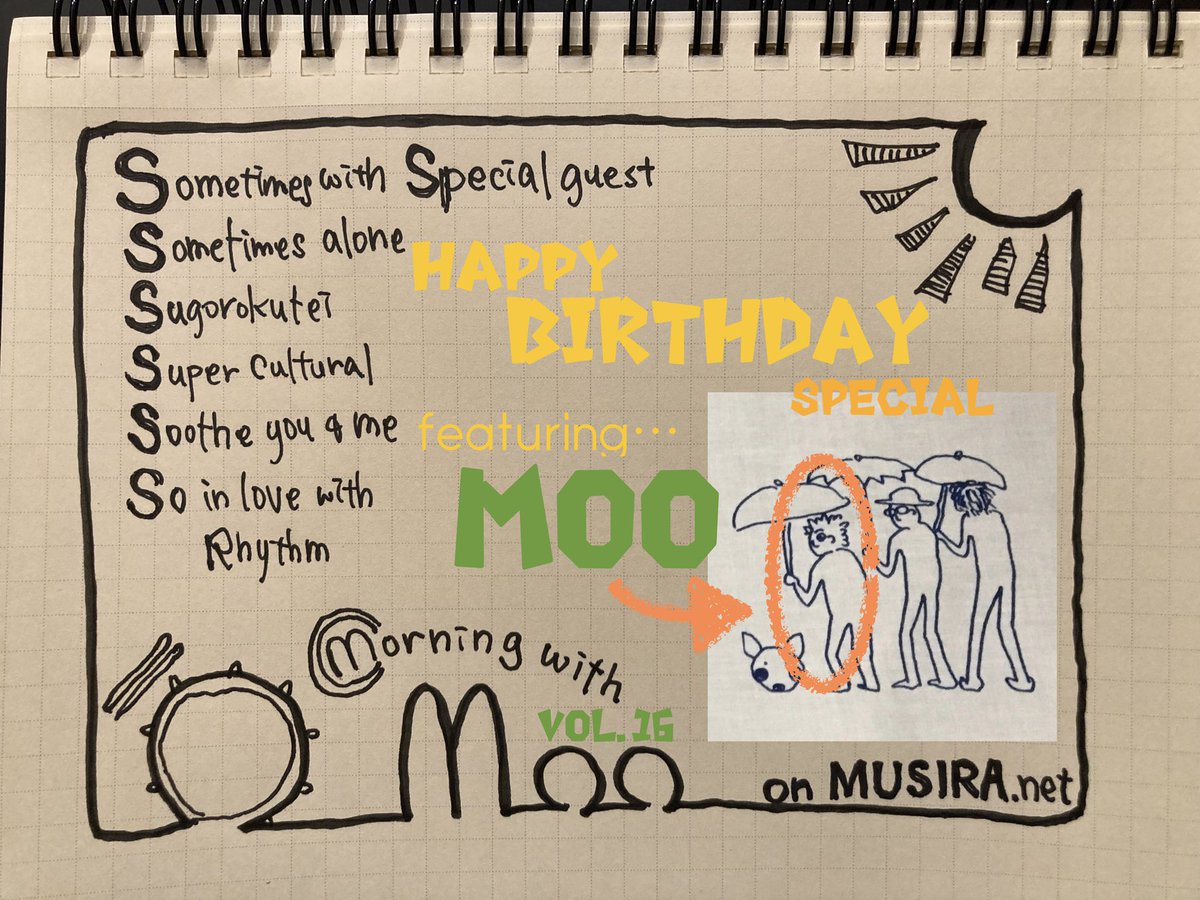 Sometimes with Special guest
Sometimes alone
Sugorokutei
Super Cultural
Soothe you & me
So in love with
Rhythm
HAPPY
BIRTHDAY
SPECIAL
featuring…
MOO
Morning with
Moo
VOL.16
on MUSIRA.net